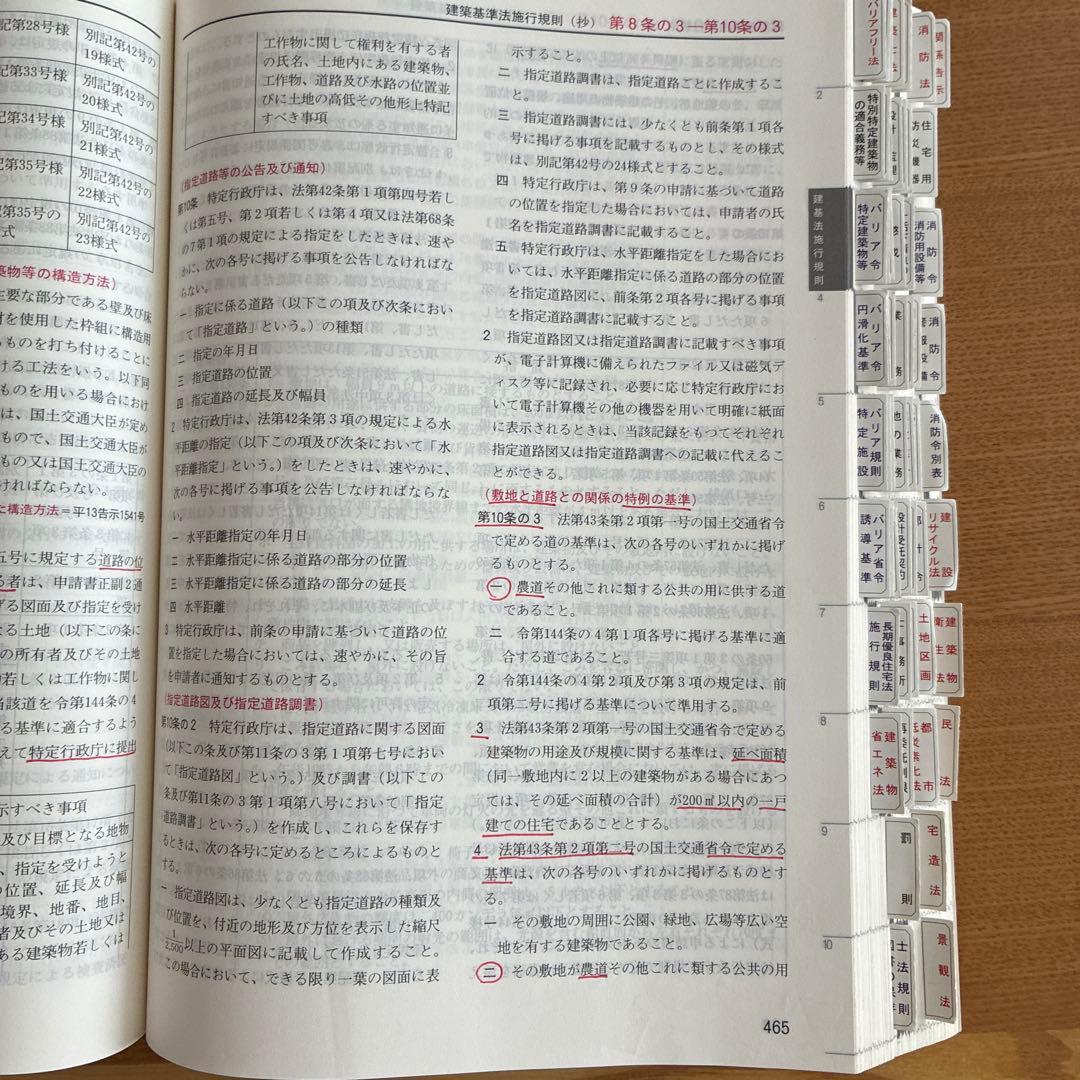 建築基準法施行規則（抄） 第８条の３―第10条の３
第28号様
別記第42号の
19様式
記第33号様
別記第42号の
20様式
記第34号様
別記第42号の
21様式
記第35号様
別記第42号の
22様式
第35号の
別記第42号の
23様式
築物等の構造方法）
主要な部分である壁及び床
材を使用した枠組に構造用
るものを打ち付けることに
ける工法をいう。以下同
ものを用いる場合におけ
は、国土交通大臣が定め
もので、国土交通大臣が
もの又は国土交通大臣の
ければならない。
と構造方法＝平13告示1541号
五号に規定する道路の位
る者は、申請書正副２通
げる図面及び指定を受け
なる土地（以下この条に
の所有者及びその土地
物若しくは工作物に関し
当該道を令第144条の４
る基準に適合するよう
えて特定行政庁に提出
示すべき事項
及び目標となる地物
、指定を受けようと
の位置、延長及び幅
境界、地番、地目、
者及びその土地又は
ある建築物若しくは
工作物に関して権利を有する者
の氏名、土地内にある建築物、
工作物、道路及び水路の位置並
びに土地の高低その他形上特記
すべき事項
（指定道路等の公告及び通知）
第10条 特定行政庁は、法第42条第１項第四号若し
くは第五号、第２項若しくは第４項又は法第68条
の７第１項の規定による指定をしたときは、速や
かに、次の各号に掲げる事項を公告しなければな
らない。
一 指定に係る道路（以下この項及び次条におい
て「指定道路」という。）の種類
二 指定の年月日
三 指定道路の位置
四 指定道路の延長及び幅員
２ 特定行政庁は、法第42条第３項の規定による水
平距離の指定（以下この項及び次条において「水
平距離指定」という。）をしたときは、速やかに、
次の各号に掲げる事項を公告しなければならな
い。
一 水平距離指定の年月日
二 水平距離指定に係る道路の部分の位置
三 水平距離指定に係る道路の部分の延長
四 水平距離
３ 特定行政庁は、前条の申請に基づいて道路の位
置を指定した場合においては、速やかに、その旨
を申請者に通知するものとする。
（指定道路図及び指定道路調書）
第10条の２ 特定行政庁は、指定道路に関する図面
（以下この条及び第11条の３第１項第七号におい
て「指定道路図」という。）及び調書（以下この
条及び第11条の３第１項第八号において「指定
道路調書」という。）を作成し、これらを保存す
るときは、次の各号に定めるところによるものと
する。
一 指定道路図は、少なくとも指定道路の種類及
び位置を、付近の地形及び方位を表示した縮尺
1/2,500以上の平面図に記載して作成すること。
この場合において、できる限り一葉の図面に表
示すること。
二 指定道路調書は、指定道路ごとに作成するこ
と。
三 指定道路調書には、少なくとも前条第１項各
号に掲げる事項を記載するものとし、その様式
は、別記第42号の24様式とすること。
四 特定行政庁は、第９条の申請に基づいて道路
の位置を指定した場合においては、申請者の氏
名を指定道路調書に記載すること。
五 特定行政庁は、水平距離指定をした場合にお
いては、水平距離指定に係る道路の部分の位置
を指定道路図に、前条第２項各号に掲げる事項
を指定道路調書に記載すること。
２ 指定道路図又は指定道路調書に記載すべき事項
が、電子計算機に備えられたファイル又は磁気デ
ィスク等に記録され、必要に応じ特定行政庁にお
いて電子計算機その他の機器を用いて明確に紙面
に表示されるときは、当該記録をもつてそれぞれ
指定道路図又は指定道路調書への記載に代えるこ
とができる。
（敷地と道路との関係の特例の基準）
第10条の３ 法第43条第２項第一号の国土交通省令
で定める道の基準は、次の各号のいずれかに掲げ
るものとする。
一 農道その他これに類する公共の用に供する道
であること。
二 令第144条の４第１項各号に掲げる基準に適
合する道であること。
２ 令第144条の４第２項及び第３項の規定は、前
項第二号に掲げる基準について準用する。
３ 法第43条第２項第一号の国土交通省令で定める
建築物の用途及び規模に関する基準は、延べ面積
（同一敷地内に２以上の建築物がある場合にあつ
ては、その延べ面積の合計）が200㎡以内の一戸
建ての住宅であることとする。
４ 法第43条第２項第二号の国土交通省令で定める
基準は、次の各号のいずれかに掲げるものとす
る。
一 その敷地の周囲に公園、緑地、広場等広い空
地を有する建築物であること。
二 その敷地が農道その他これに類する公共の用
465
建基法施行規則
2
4
5
6
7
8
9
10
バリアフリー法
消防法
関係告示
特別特定建築物
の適合義務等
住宅用
防災機器
バリア令
特定建築物等
消防令
消防用設備等
バリア令
円滑化基準
消防令
警報設備
バリア規則
特定施設
他の業務
消防令別表
バリア省令
誘導基準
設計受託契約
建設
リサイクル法
長期優良住宅法
施行規則
土地区画
建築物
衛生法
建築物
省エネ法
都市
低炭素化法
民法
罰則
宅造法
士法規則
景観法